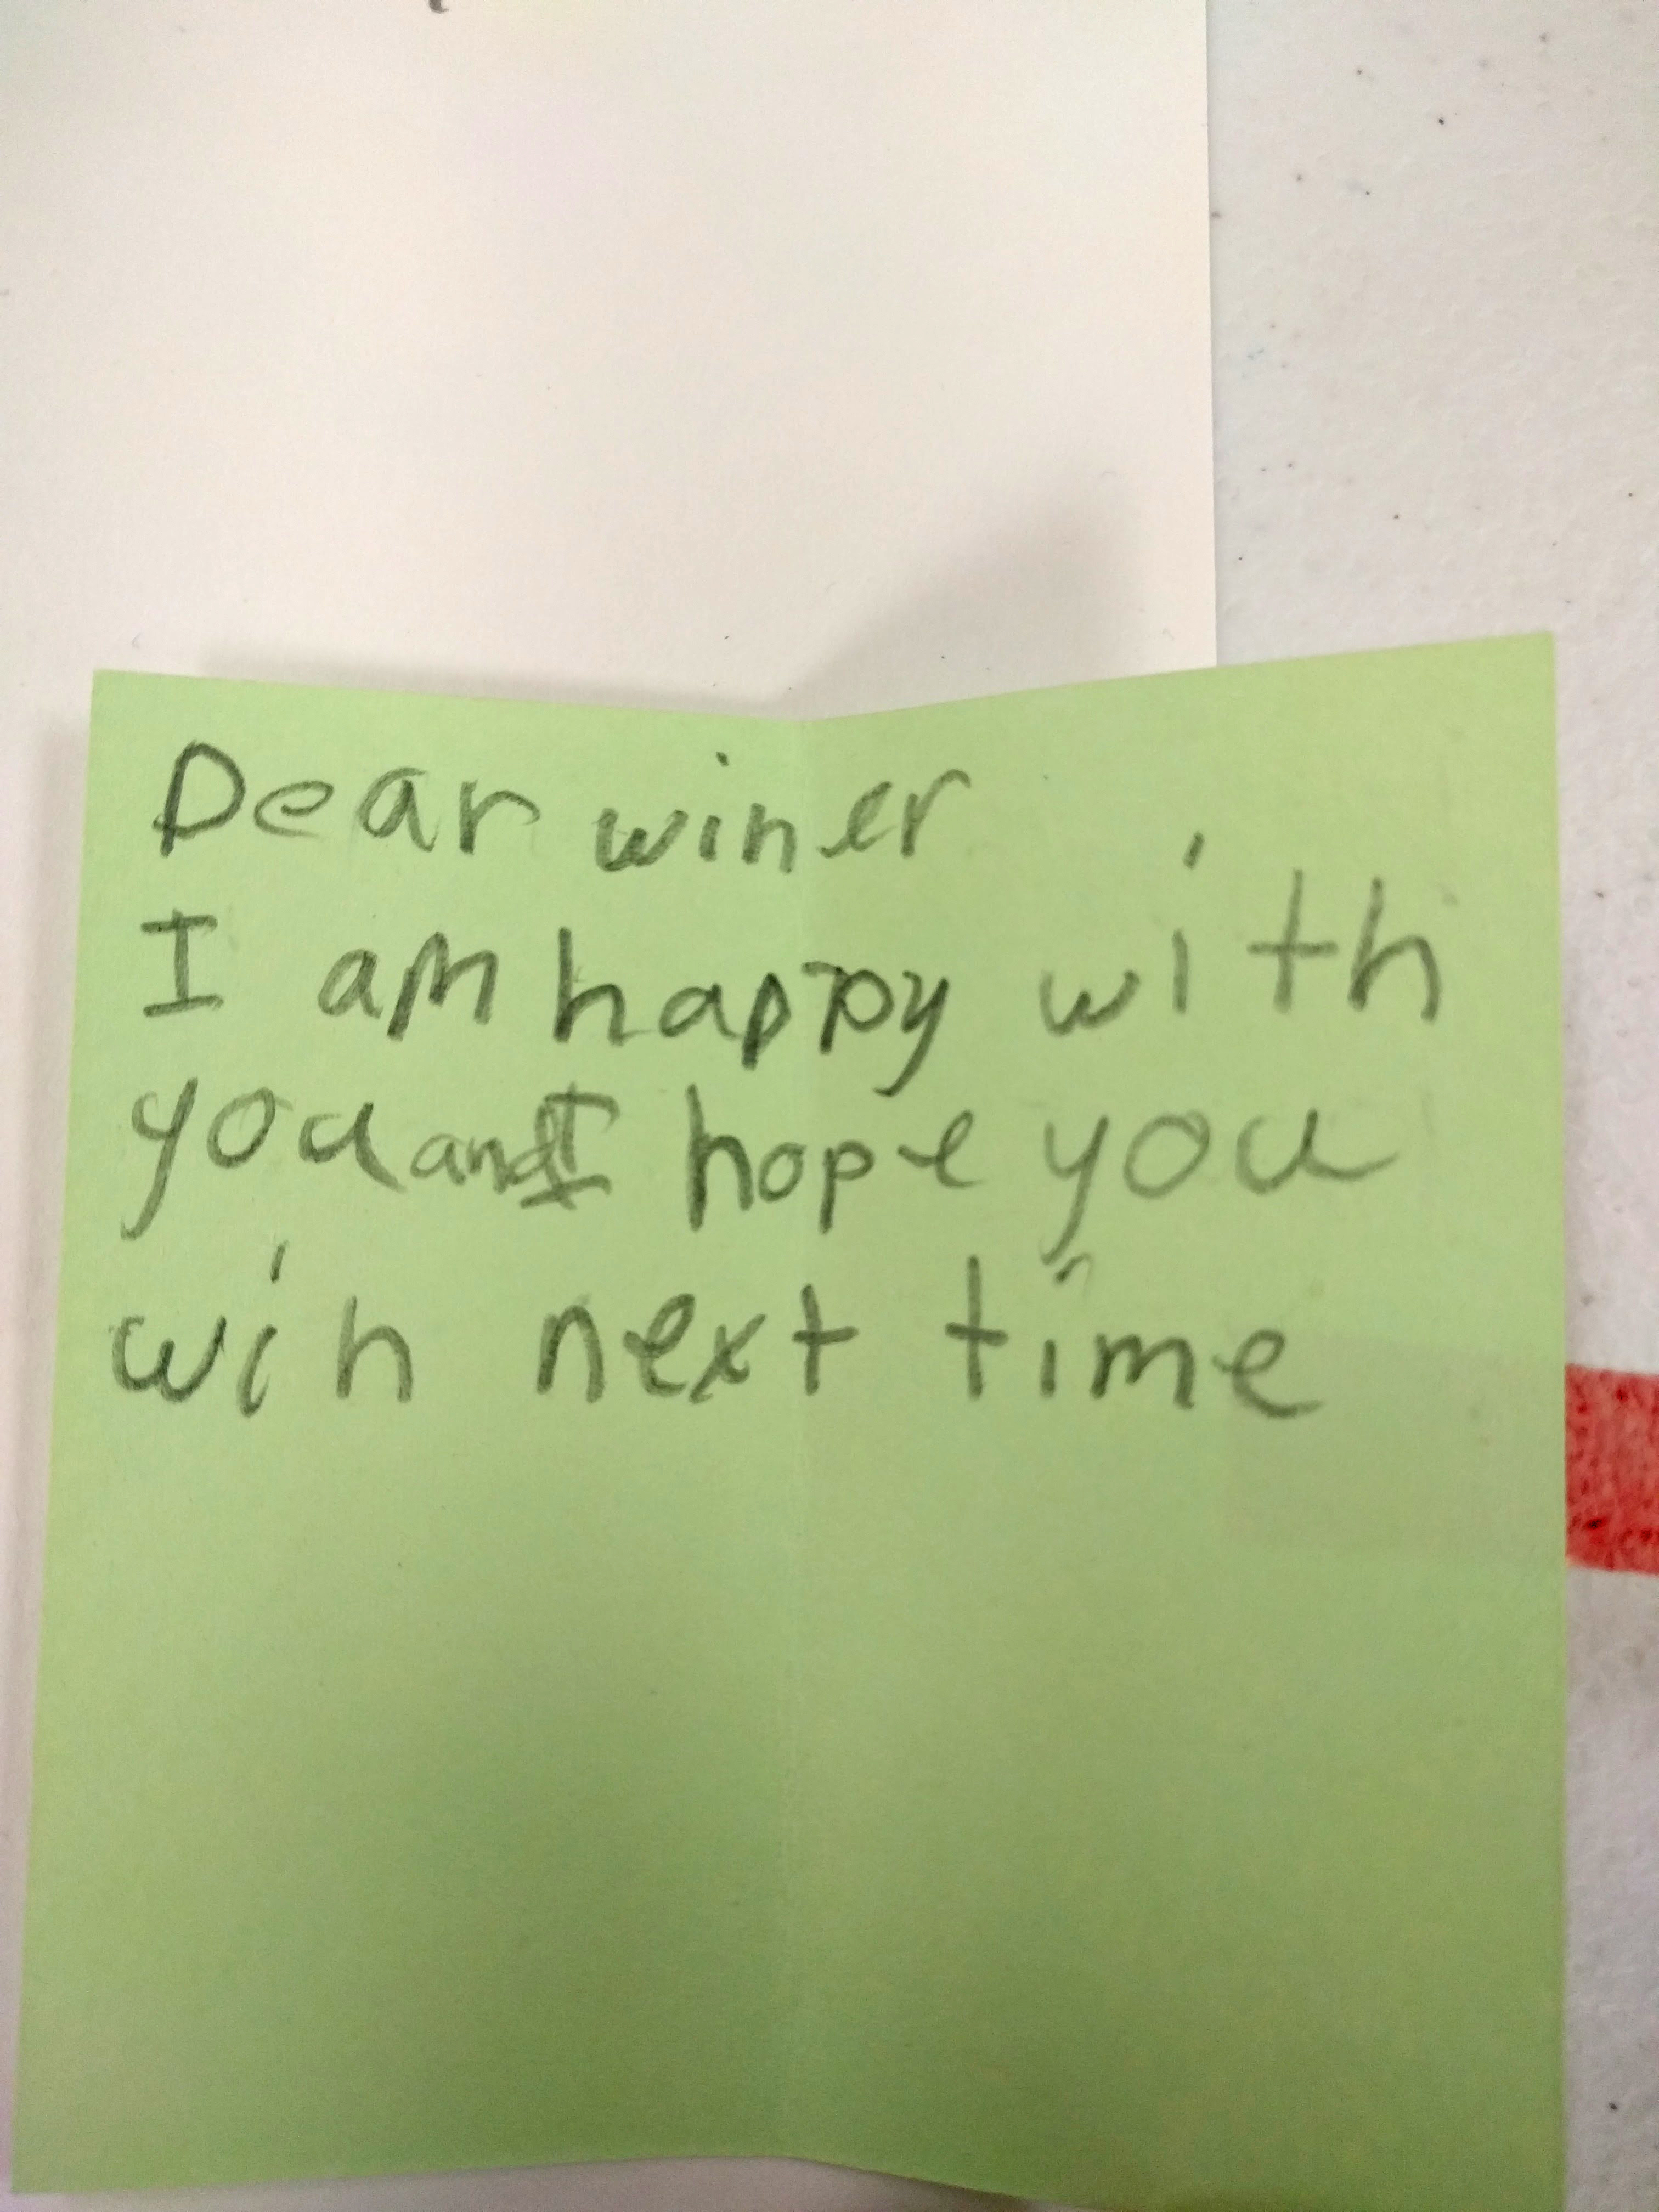 Dear winer
I am happy with
you and I hope you
win next time